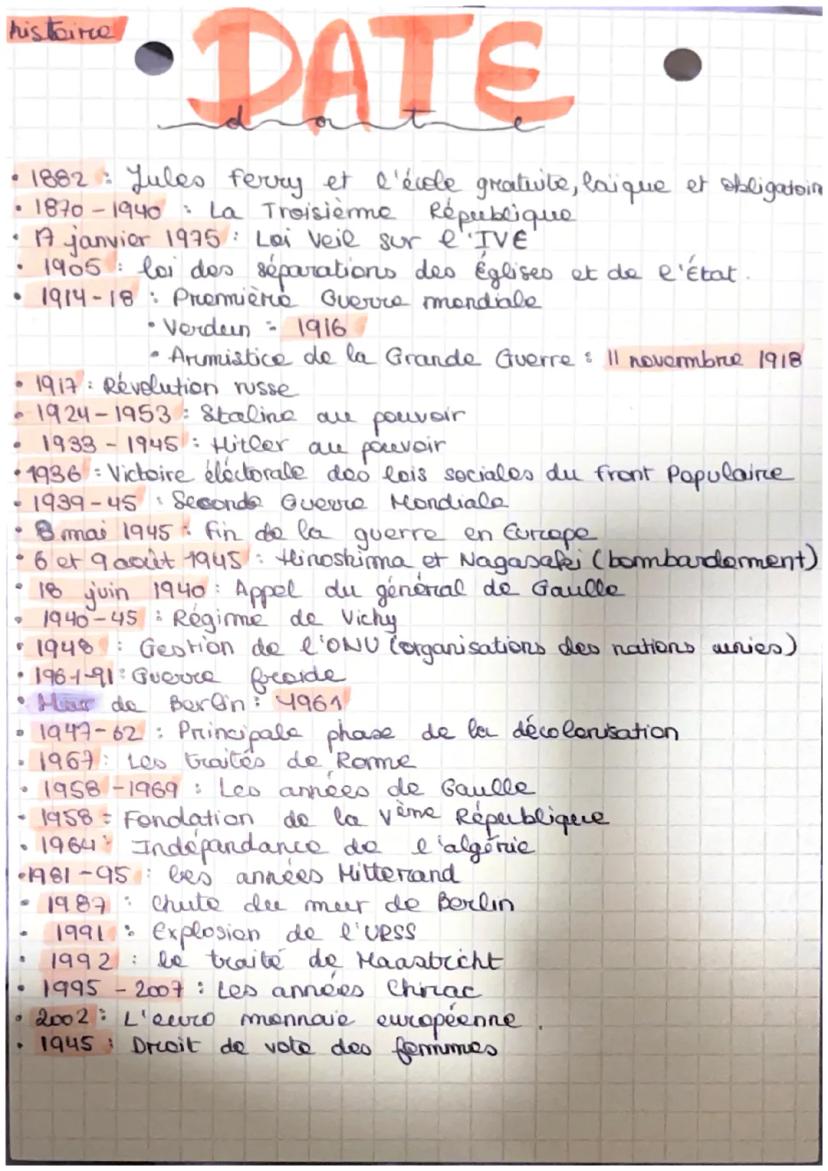 histoire
DATE
date
• 1882 : Jules Ferry et l'école gratuite, laïque et obligatoir
• 1870-1940 : La Troisième République
• 17 janvier 1975 : Loi Veil sur l'IVE
• 1905 : loi des séparations des Églises et de l'État.
• 1914-18 : Première Guerre mondiale
• Verdun : 1916
• Armistice de la Grande Guerre : 11 novembre 1918
• 1917 : Révolution russe
• 1924-1953 : Staline au pouvoir
• 1933-1945 : Hitler au pouvoir
• 1936 : Victoire éléctorale des lois sociales du front Populaire
• 1939-45 : Seconde Guerre Mondiale
• 8 mai 1945 : fin de la guerre en Europe
• 6 et 9 août 1945 : Hiroshima et Nagasaki (bombardement)
• 18 juin 1940 : Appel du général de Gaulle
• 1940-45 : Régime de Vichy
• 1948 : Gestion de l'ONU (organisations des nations unies)
• 1961-91 : Guerre froide
• Mur de Berlin : 1961
• 1947-62 : Principale phase de la décolonisation
• 1967 : Les traités de Rome
• 1958-1969 : Les années de Gaulle
• 1958 : Fondation de la Vème République
• 1964 : Indépandance de l'algérie
• 1981-95 : les années Mitterand
• 1987 : chute du mur de Berlin
• 1991 : Explosion de l'URSS
• 1992 : le traité de Maastricht
• 1995-2007 : Les années Chirac
• 2002 : L'euro monnaie européenne.
• 1945 : Droit de vote des femmes